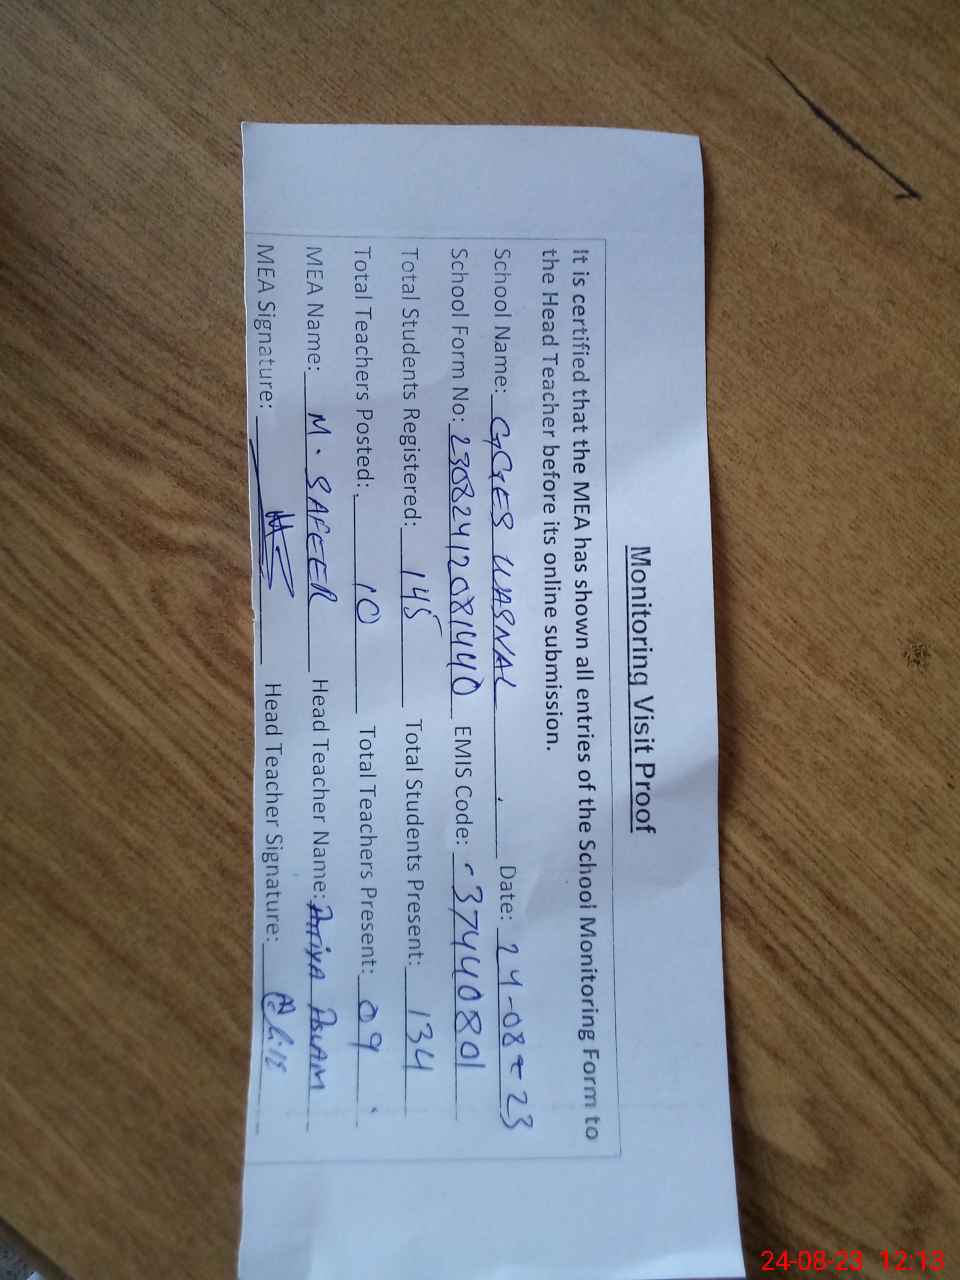 Monitoring Visit Proof
It is certified that the MEA has shown all entries of the School Monitoring Form to
the Head Teacher before its online submission.
School Name: GGES WASNAL Date: 24-08-23
School Form No: 23082412081440 EMIS Code: -37440801
Total Students Registered: 145 Total Students Present: 134
Total Teachers Posted: 10 Total Teachers Present: 09
MEA Name: M. SAFEER Head Teacher Name: Atiya Aslam
MEA Signature: Head Teacher Signature:
24-08-23 12:13